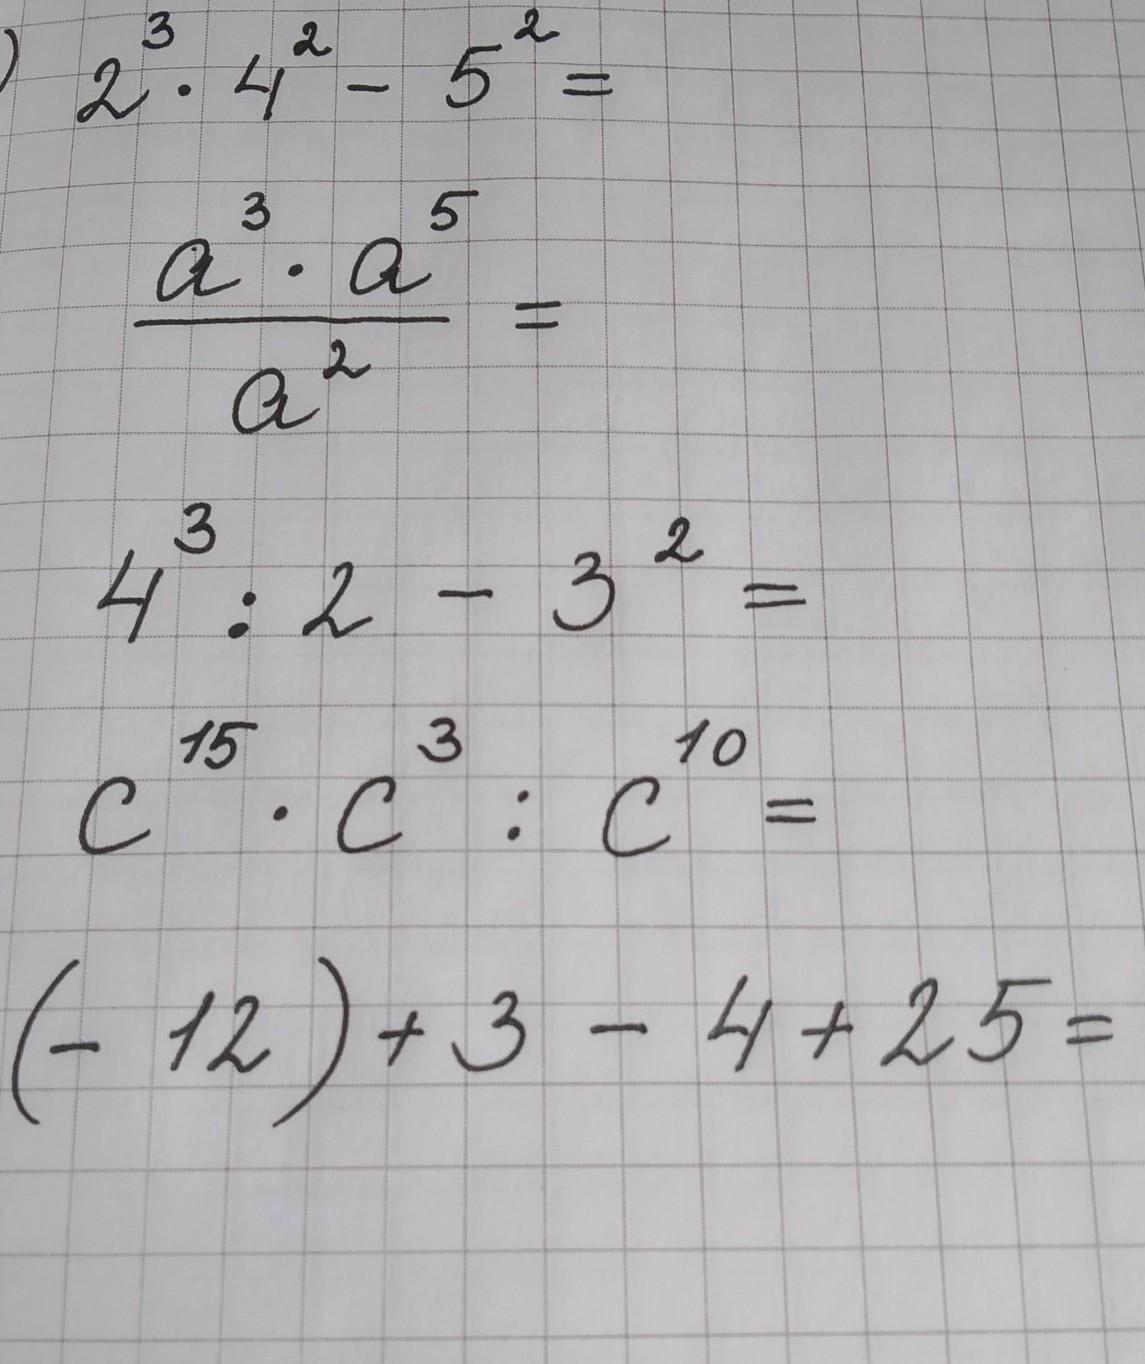 ) 2³ · 4² - 5² =
a³ · a⁵
a² =
4³ : 2 - 3² =
c¹⁵ · c³ : c¹⁰ =
(- 12) + 3 - 4 + 25 =